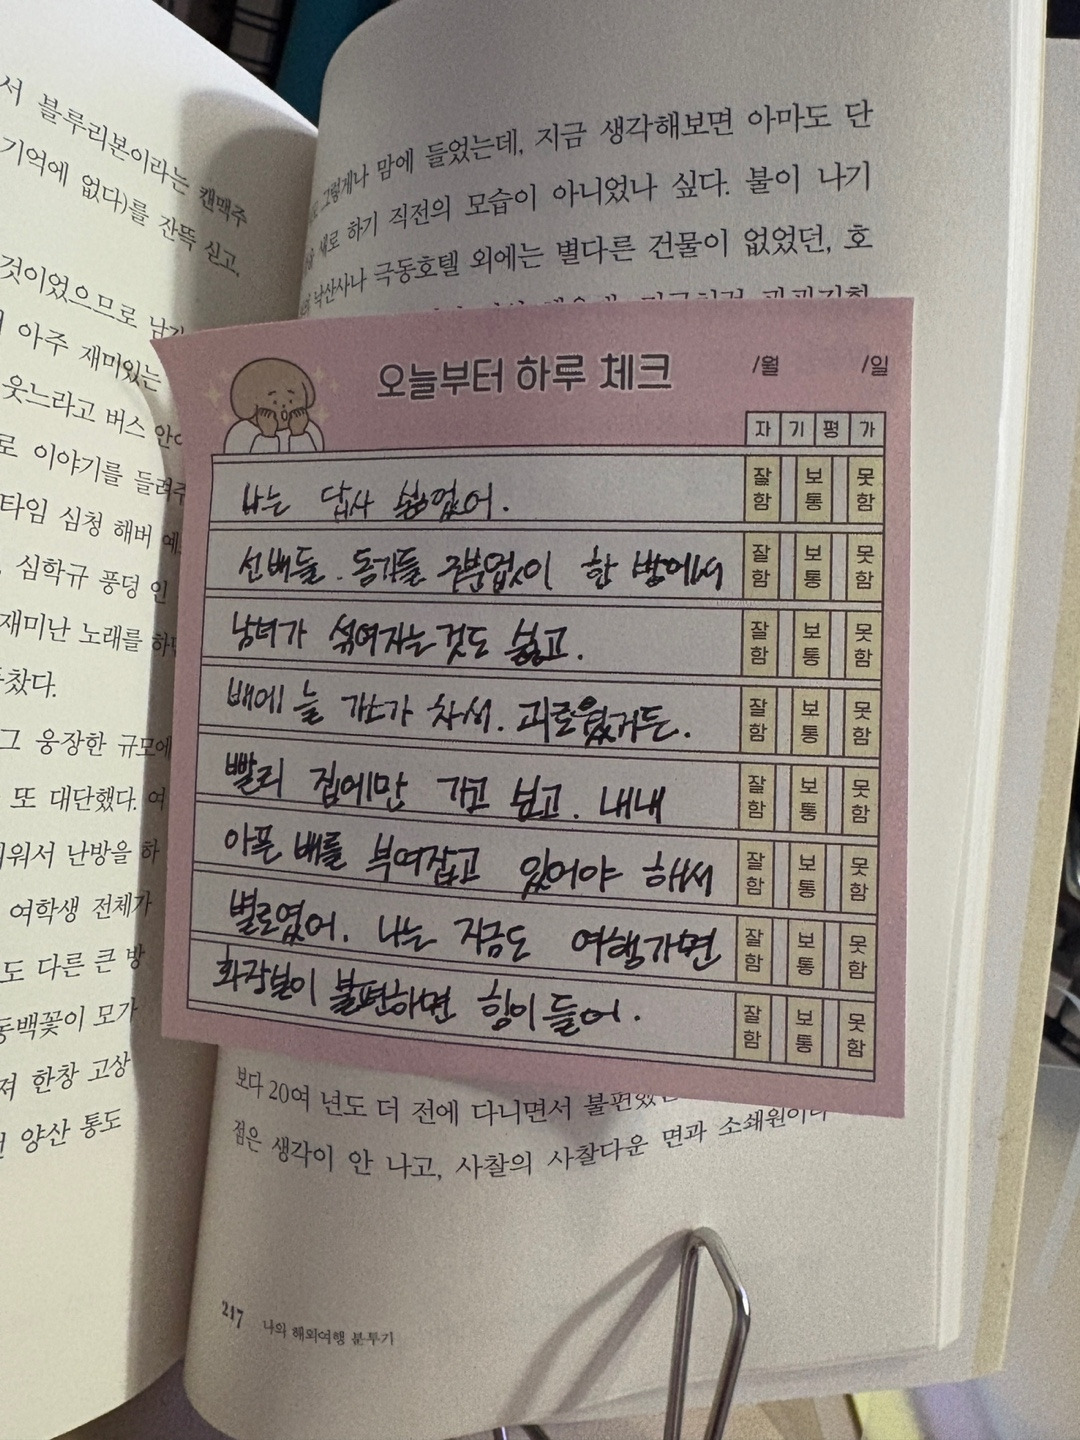 서 블루리본이라는 캔맥주
기억에 없다)를 잔뜩 싣고,
것이었으므로 남
아주 재미있는
웃느라고 버스 안
로 이야기를 들려주
타임 심청 해버
심학규 풍덩 인
재미난 노래를 하
찼다.
그 웅장한 규모에
또 대단했다. 여
워서 난방을 하
여학생 전체가
도 다른 큰 방
동백꽃이 모가
져 한창 고상
양산 통도
그렇게나 맘에 들었는데, 지금 생각해보면 아마도 단
새로 하기 직전의 모습이 아니었나 싶다. 불이 나기
낙산사나 극동호텔 외에는 별다른 건물이 없었던, 호
오늘부터 하루 체크 /월 /일
자 기 평 가
나는 답사 싫었어. 잘함 보통 못함
선배들. 동기들 구분없이 한 방에서 잘함 보통 못함
남녀가 섞여자는것도 싫고. 잘함 보통 못함
배에 늘 가스가 차서. 괴로웠거든. 잘함 보통 못함
빨리 집에만 가고 싶고. 내내 잘함 보통 못함
아픈 배를 부여잡고 있어야 해서 잘함 보통 못함
별로였어. 나는 지금도 여행가면 잘함 보통 못함
화장실이 불편하면 힘이 들어. 잘함 보통 못함
보다 20여 년도 더 전에 다니면서 불편했
점은 생각이 안 나고, 사찰의 사찰다운 면과 소쇄원이나
217 나의 해외여행 분투기